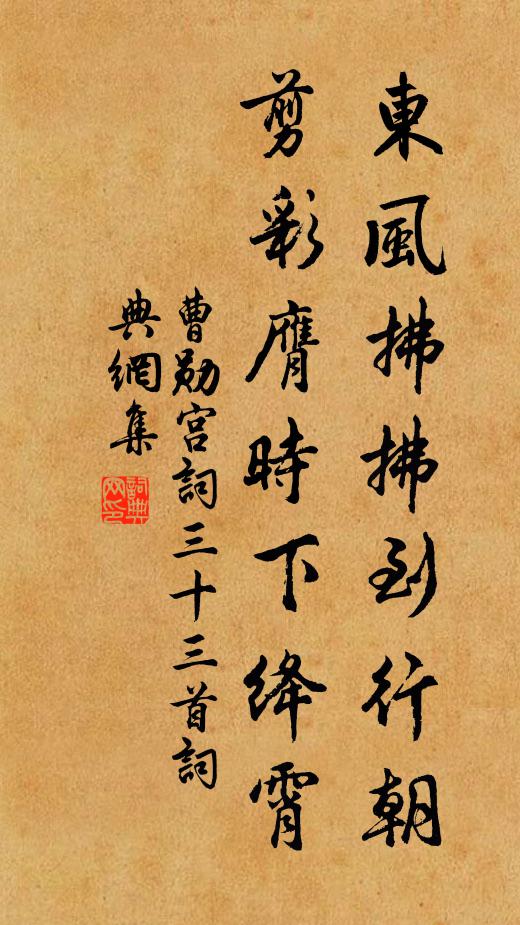 東風拂拂到行朝
剪彩膺時下絳霄
曹勛宮詞三十三首詞
典網集
詞典
网印